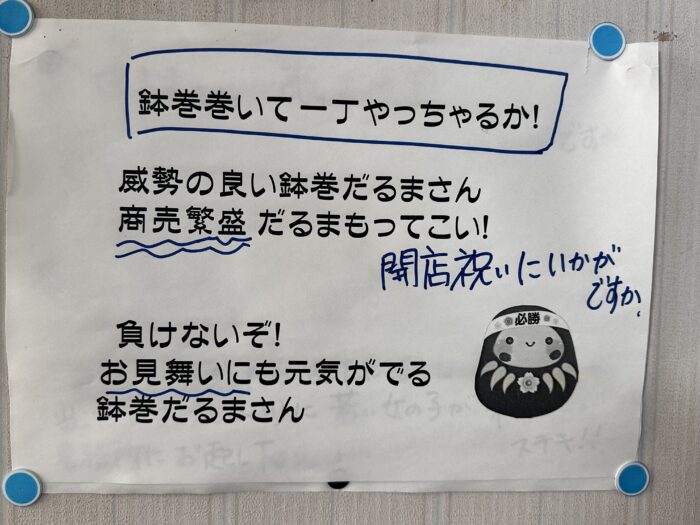 鉢巻巻いて一丁やっちゃるか!
威勢の良い鉢巻だるまさん
商売繁盛 だるまもってこい!
開店祝いにいかが
ですか?
負けないぞ!
お見舞いにも元気がでる
鉢巻だるまさん
必勝